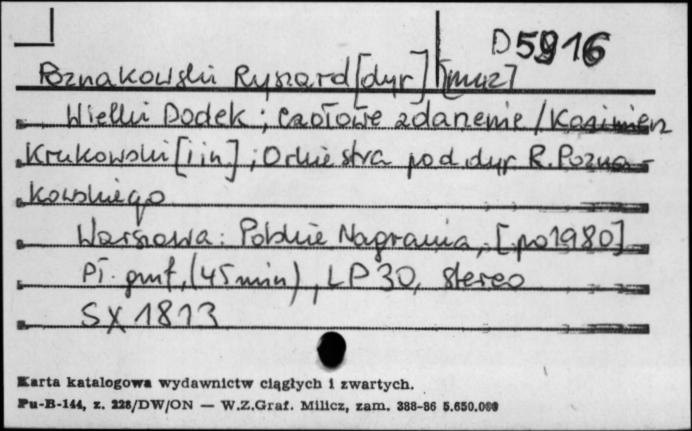 D5916
Poznakowski Ryszard [dyr] [muz]
Wielki Dodek; czołowe zdarzenie / Kazimierz
Krukowski [i in]; Orkiestra pod dyr R. Pozna-
kowskiego
Warszawa: Polskie Nagrania, [po 1980]
Pł. gmf, (45 min), LP 30, stereo
SX 1813
Karta katalogowa wydawnictw ciągłych i zwartych.
Pu-B-144, z. 228/DW/ON — W.Z.Graf. Milicz, zam. 388-86 5.650.000